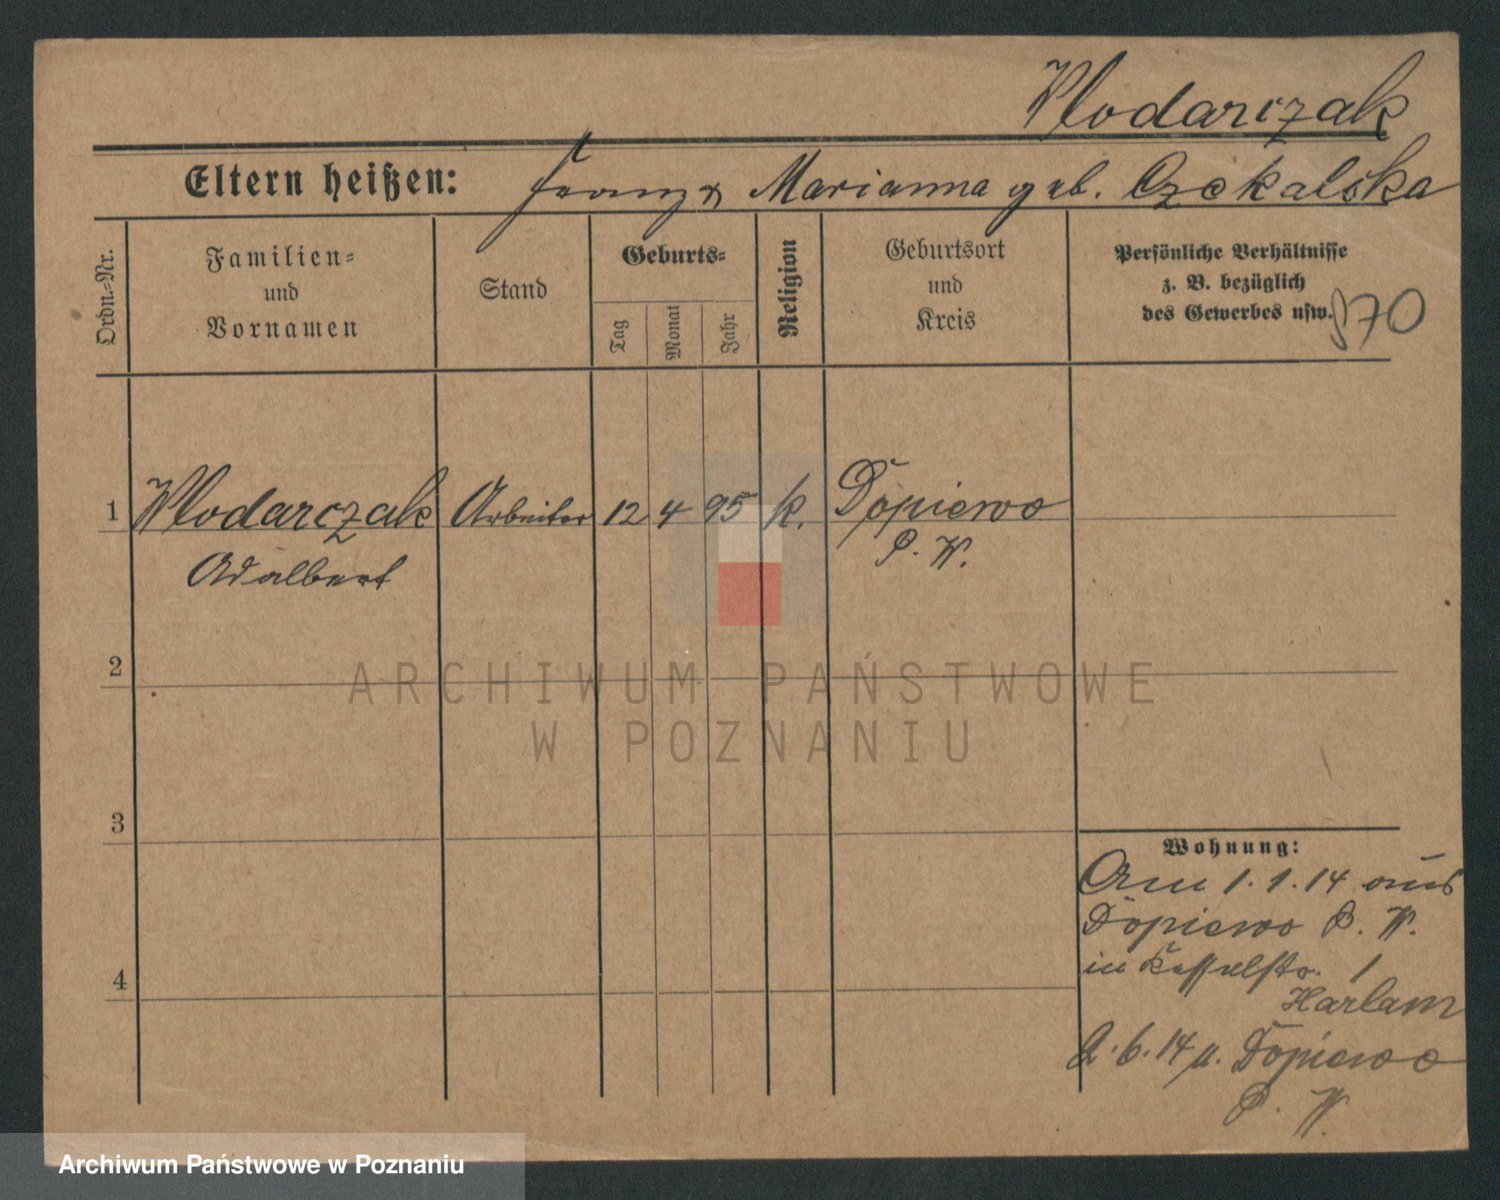 Wlodarczak
Eltern heißen: Franz u Marianna geb. Czekalska
Ordn.=Nr.
Familien=
und
Vornamen
Stand
Geburts=
Tag
Monat
Jahr
Religion
Geburtsort
und
Kreis
Persönliche Verhältnisse
z. B. bezüglich
des Gewerbes usw.
870
1 Wlodarczak Arbeiter 12 4 95 k. Dopiewo
Adalbert P. W.
2
3
4
Wohnung:
Am 1.1.14 aus
Dopiewo P. W.
in Kesselstr. 1
Harlam
2.6.14 n. Dopiewo
P. W.
ARCHIWUM PAŃSTWOWE
W POZNANIU
Archiwum Państwowe w Poznaniu